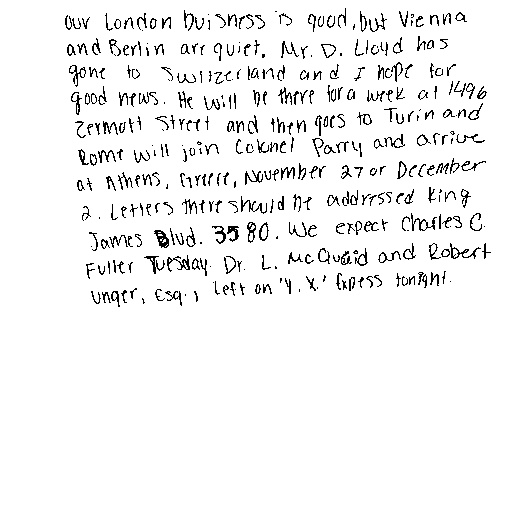 our London buisness is good, but Vienna
and Berlin are quiet. Mr. D. Lloyd has
gone to Switzerland and I hope for
good news. He will be there for a week at 1496
Zermott Street and then goes to Turin and
Rome will join Colonel Parry and arrive
at Athens, Greece, November 27 or December
2. Letters there should be addressed King
James Blvd. 3580. We expect Charles C.
Fuller Tuesday. Dr. L. McQuaid and Robert
Unger, Esq., left on 'Y. X.' Express tonight.